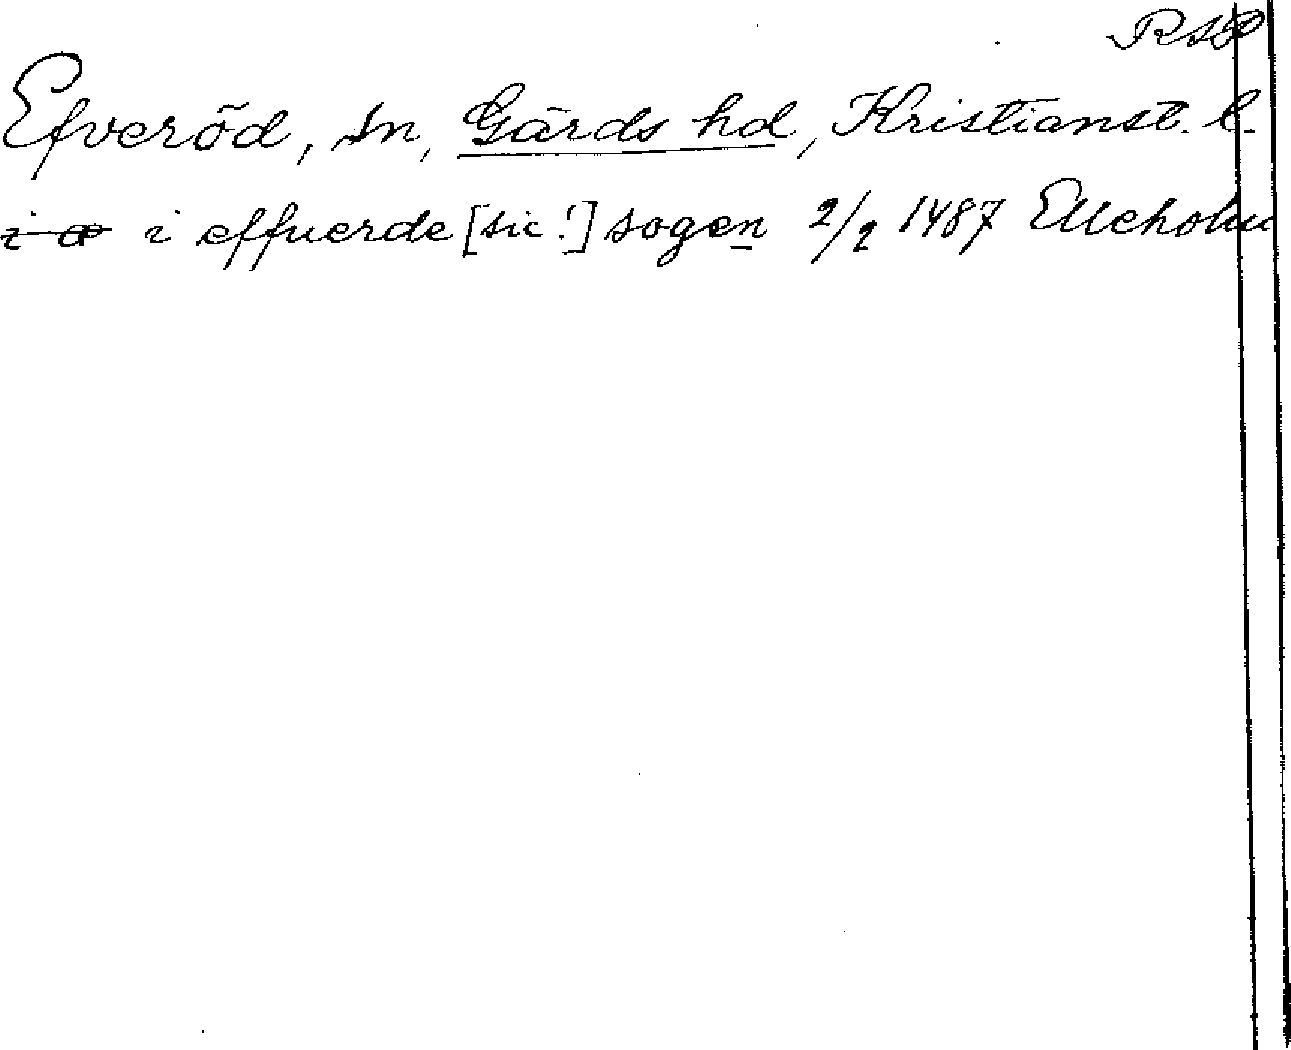 Efveröd, sn, Gärds hd, Kristianst. l.
i effuerde [sic!] sogen 2/2 1487 Elleholm